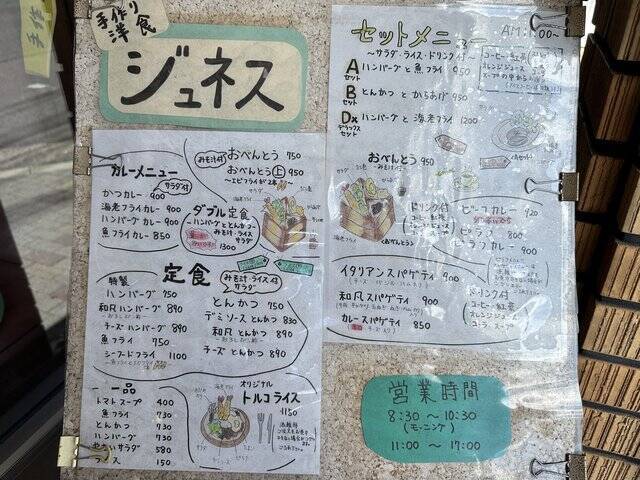 手作り
洋食
ジュネス
カレーメニュー
サラダ付
かつカレー 900
海老フライカレー 900
ハンバーグカレー 900
魚フライカレー 850
みそ汁付
おべんとう 750
おべんとう(上) 950
〜エビフライが2本〜
ダブル定食
〜ハンバーグととんかつ〜
みそ汁・ライス
サラダ
1300
定食
みそ汁・ライス付
サラダ
特製
ハンバーグ 750
和風ハンバーグ 890
チーズハンバーグ 890
魚フライ 750
シーフードフライ 1100
とんかつ 750
デミソースとんかつ 830
和風とんかつ 890
チーズとんかつ 890
一品
トマトスープ 400
魚フライ 730
とんかつ 730
ハンバーグ 730
サラダ 580
ライス 150
オリジナル
トルコライス
1150
セットメニュー
〜サラダ・ライス・ドリンク付〜
Aセット ハンバーグと魚フライ 950
Bセット とんかつとからあげ 950
Dx デラックスセット ハンバーグと海老フライ 1200
コーヒー・紅茶
オレンジジュース
おべんとう 950
〜みそ汁付〜
ドリンク付
コーヒー・紅茶
<おべんとう>
ビーフカレー 920
ピラフ 800
イタリアンスパゲティ 900
和風スパゲティ 900
カレースパゲティ 850
ドリンク付
コーヒー・紅茶
オレンジジュース
コーラ・スープ
営業時間
8:30 〜 10:30
(モーニング)
11:00 〜 17:00